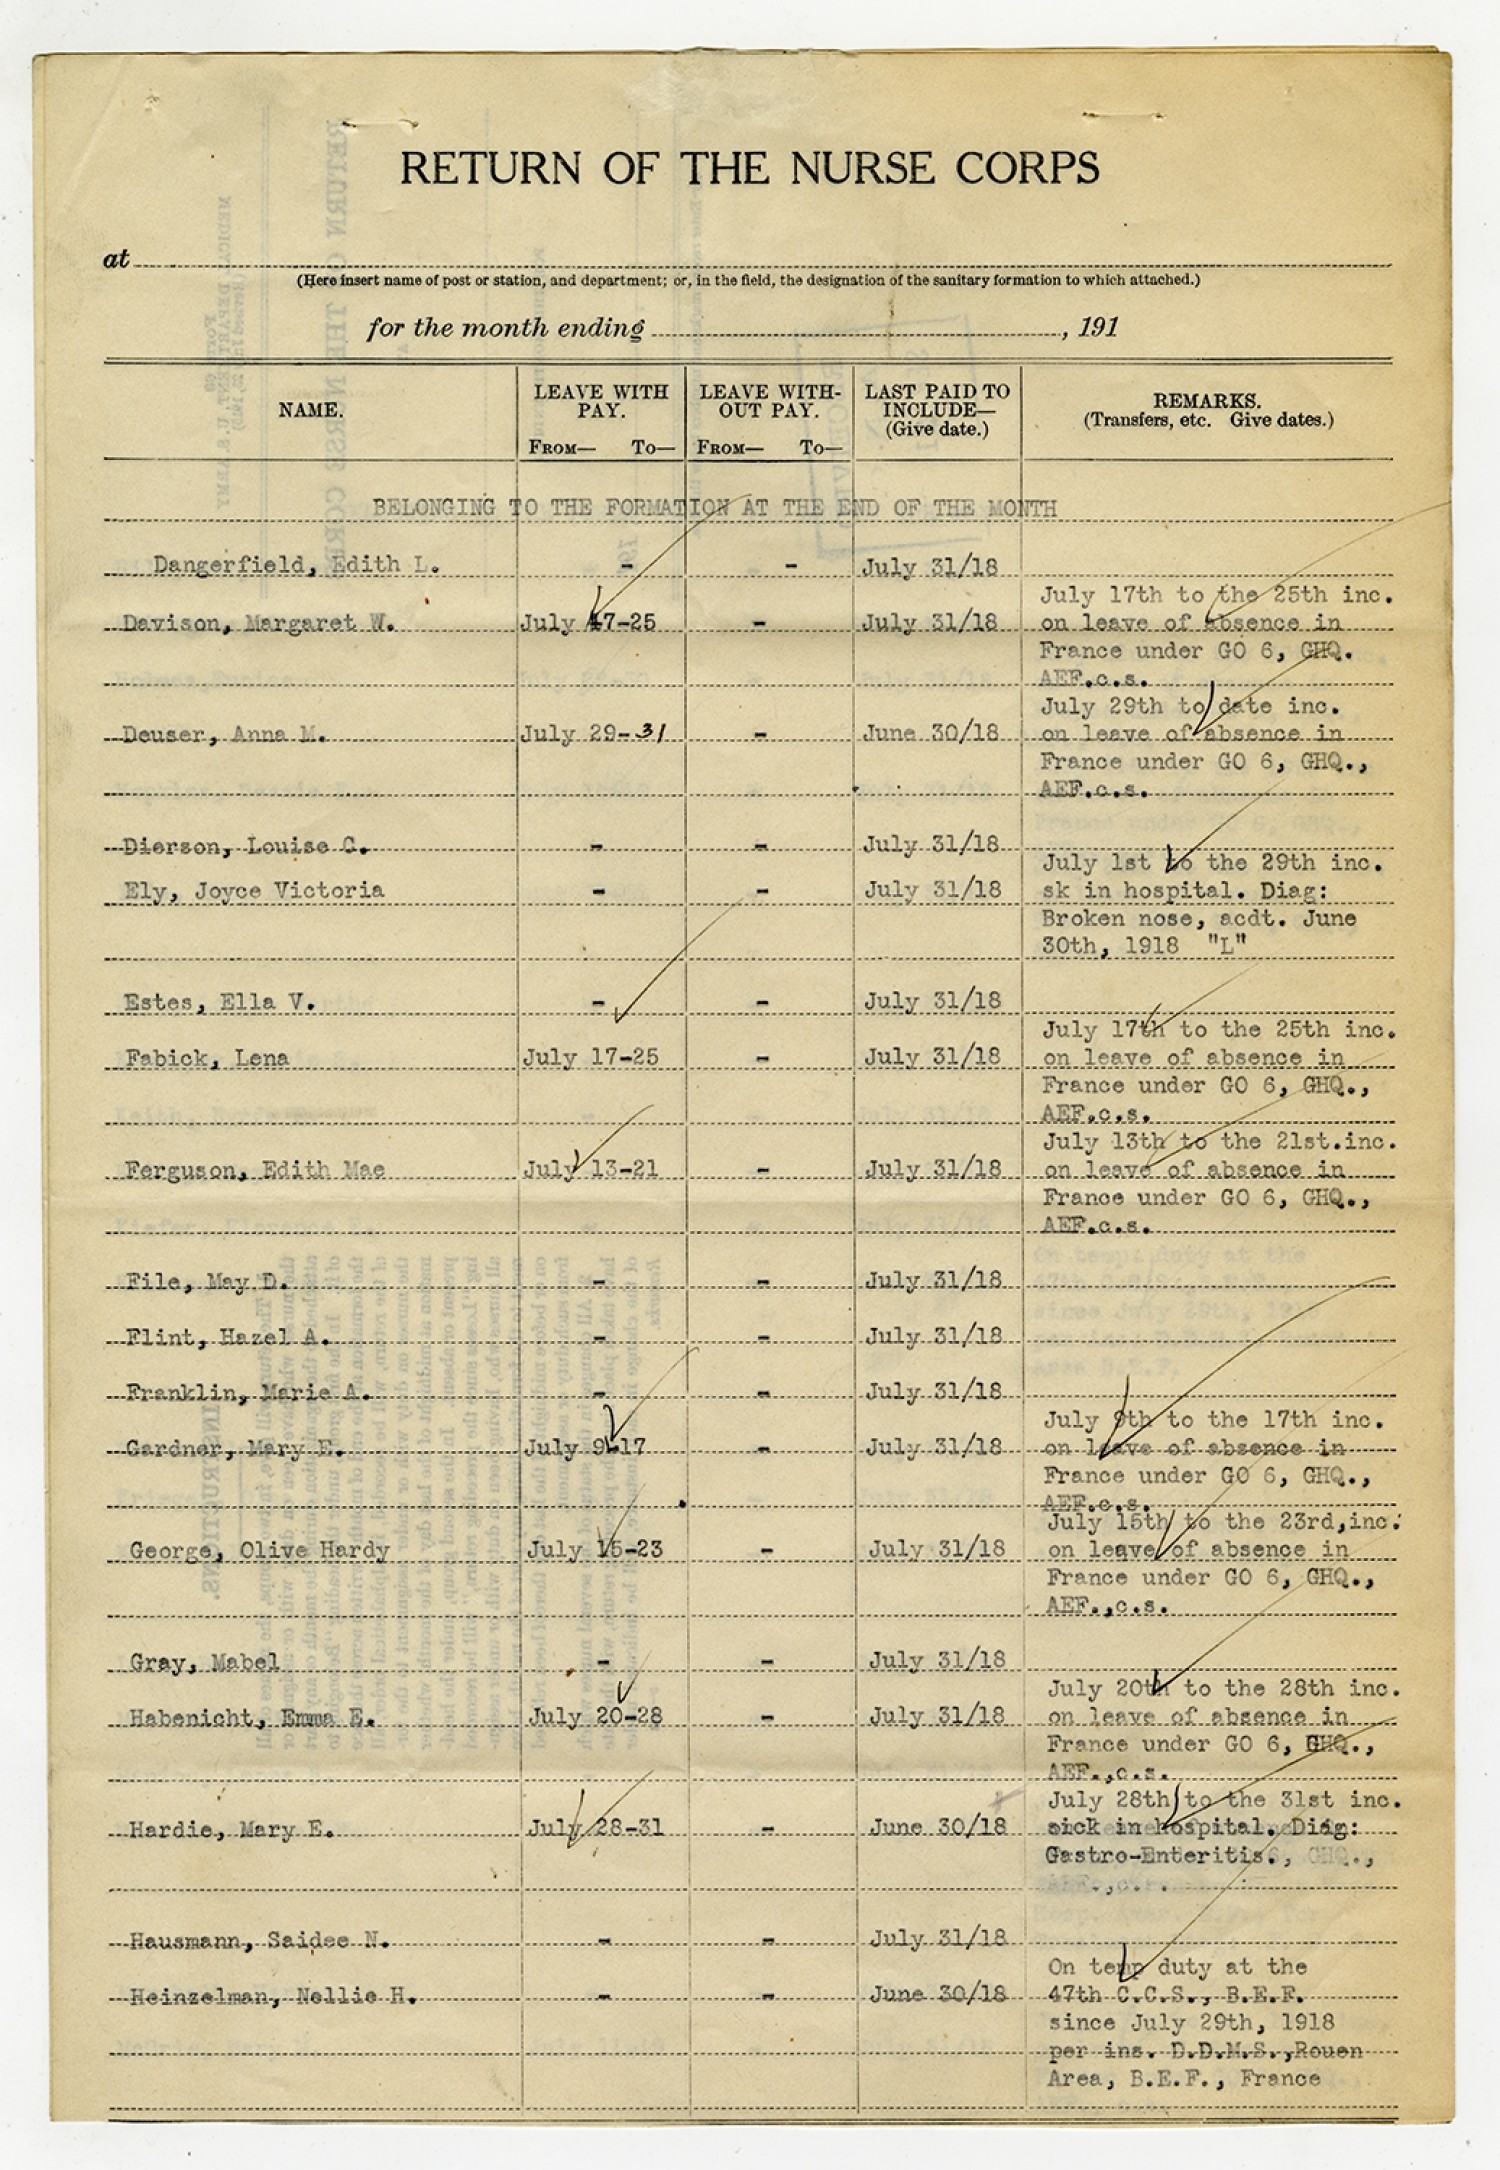 RETURN OF THE NURSE CORPS
at
(Here insert name of post or station, and department; or, in the field, the designation of the sanitary formation to which attached.)
for the month ending , 191
NAME.
LEAVE WITH PAY.
FROM— TO—
LEAVE WITH-OUT PAY.
FROM— TO—
LAST PAID TO INCLUDE— (Give date.)
REMARKS.
(Transfers, etc. Give dates.)
BELONGING TO THE FORMATION AT THE END OF THE MONTH
Dangerfield, Edith L. - - July 31/18
July 17th to the 25th inc.
Davison, Margaret W. July 17-25 - July 31/18 on leave of absence in
France under GO 6, GHQ.
AEF.c.s.
July 29th to date inc.
Deuser, Anna M. July 29-31 - June 30/18 on leave of absence in
France under GO 6, GHQ.,
AEF.c.s.
Dierson, Louise C. - - July 31/18
July 1st to the 29th inc.
Ely, Joyce Victoria - - July 31/18 sk in hospital. Diag:
Broken nose, acdt. June
30th, 1918 "L"
Estes, Ella V. - July 31/18
July 17th to the 25th inc.
Fabick, Lena July 17-25 - July 31/18 on leave of absence in
France under GO 6, GHQ.,
AEF.c.s.
July 13th to the 21st.inc.
Ferguson, Edith Mae July 13-21 - July 31/18 on leave of absence in
France under GO 6, GHQ.,
AEF.c.s.
File, May D. - - July 31/18
Flint, Hazel A. - - July 31/18
Franklin, Marie A. - - July 31/18
July 9th to the 17th inc.
Gardner, Mary E. July 9-17 - July 31/18 on leave of absence in
France under GO 6, GHQ.,
AEF.c.s.
July 15th to the 23rd,inc.
George, Olive Hardy July 15-23 - July 31/18 on leave of absence in
France under GO 6, GHQ.,
AEF.,c.s.
Gray, Mabel - - July 31/18
July 20th to the 28th inc.
Habenicht, Emma E. July 20-28 - July 31/18 on leave of absence in
France under GO 6, GHQ.,
AEF.,c.s.
July 28th to the 31st inc.
Hardie, Mary E. July 28-31 - June 30/18 sick in hospital. Diag:
Gastro-Enteritis.
Hausmann, Saidee N. - - July 31/18
On temp duty at the
Heinzelman, Nellie H. - - June 30/18 47th C.C.S., B.E.F.
since July 29th, 1918
per ins. D.D.M.S.,Rouen
Area, B.E.F., France